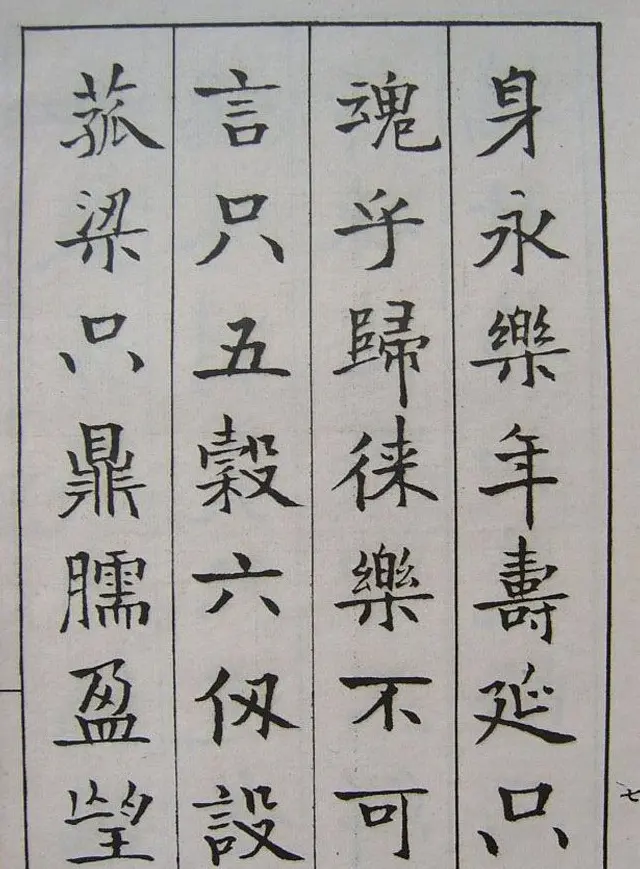 身永樂年壽延只
魂乎歸徠樂不可
言只五穀六仞設
菰梁只鼎臑盈望
七